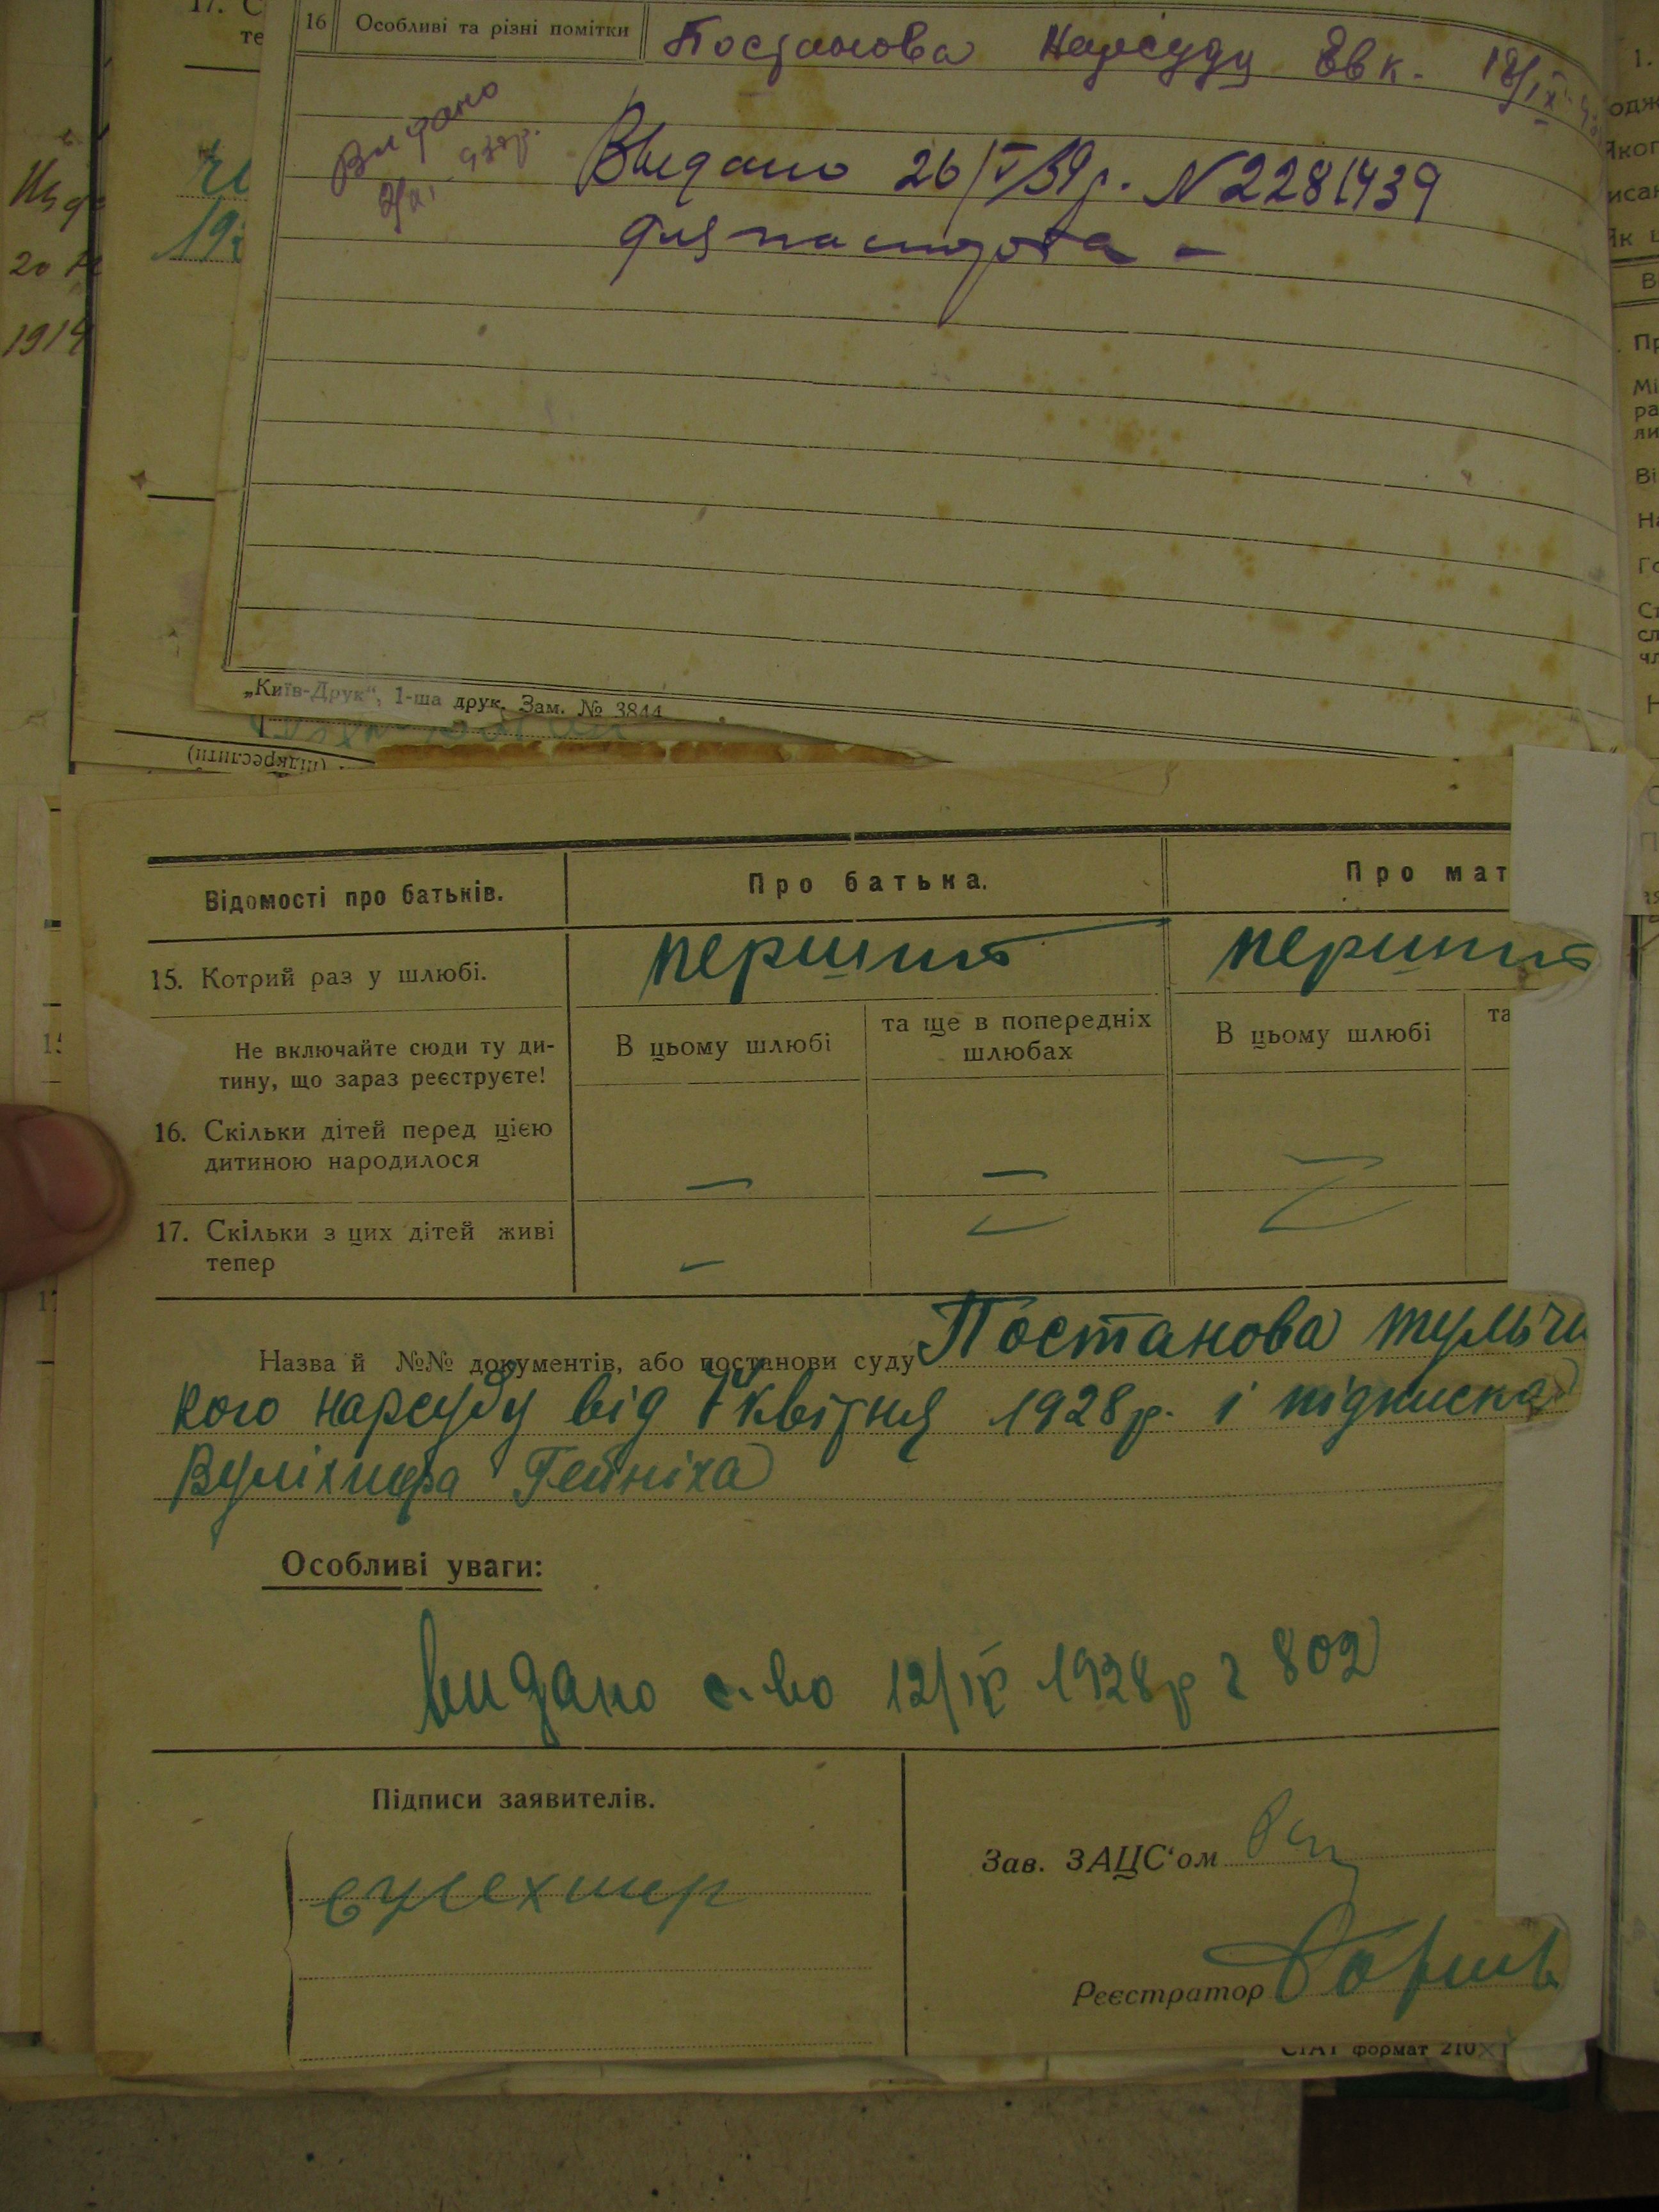 16 Особливі та різні помітки Постанова Нарсуду
Видано
Выдано 26/V 39 р. N 2281439
для паспорта –
„Київ-Друк“, 1-ша друк. Зам. № 3844
(підкреслити)
Відомості про батьків. Про батька. Про мат
15. Котрий раз у шлюбі. перший перший
Не включайте сюди ту ди-
тину, що зараз реєструєте!
В цьому шлюбі та ще в попередніх шлюбах В цьому шлюбі та
16. Скільки дітей перед цією
дитиною народилося — — —
17. Скільки з цих дітей живі
тепер —
Назва й №№ документів, або постанови суду Постанова тульчи
кого нарсуду від квітня 1928 р. і підписка
Особливі уваги:
видано с-во 12/IV 1928 р 802
Підписи заявителів.
Зав. ЗАЦС‘ом
Реєстратор
СТАТ формат 210
1914